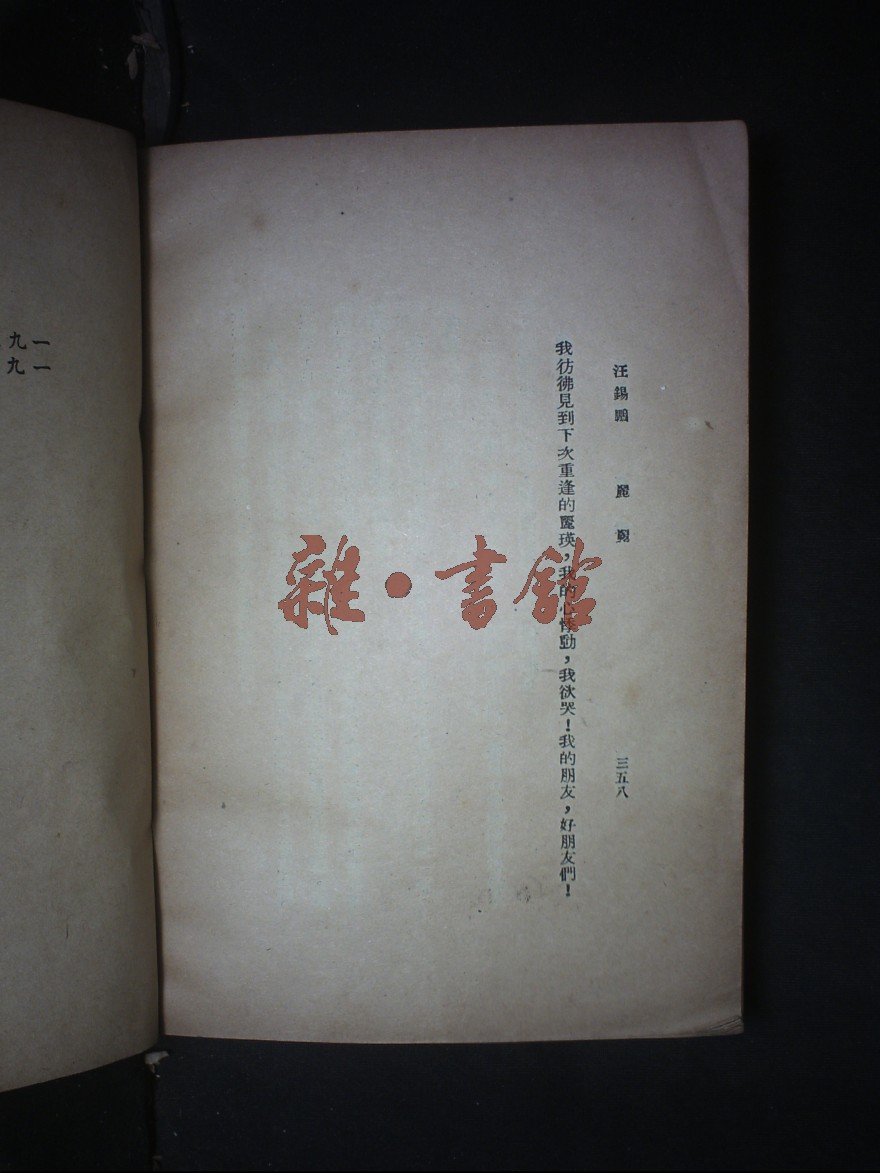 汪錫鵬 麗瑛 三五八
我彷彿見到下次重逢的麗瑛，我的心悸動，我欲哭！我的朋友，好朋友們！
雜·書館
一九
一九